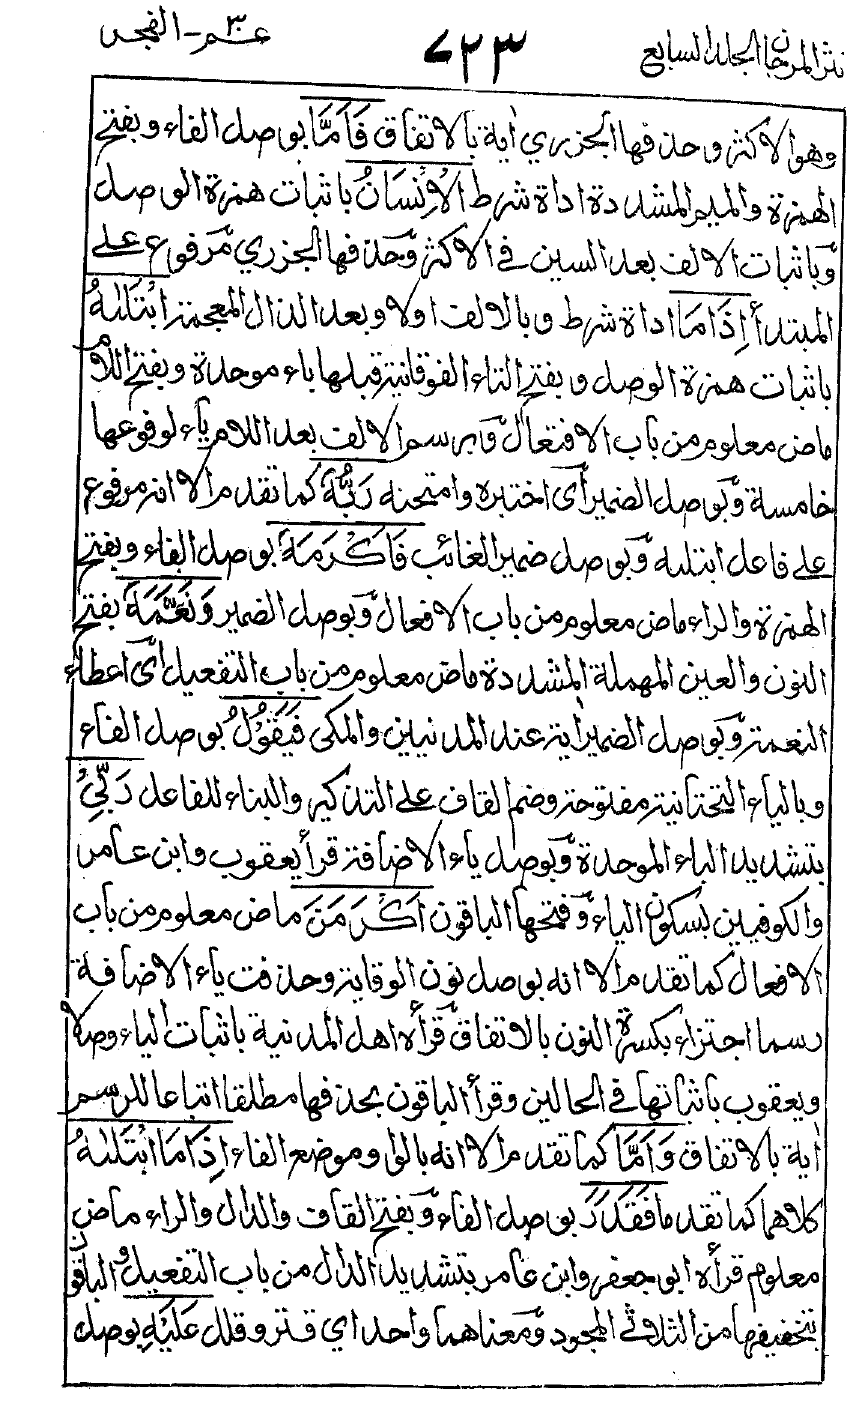 نثر المرجان الجلد السابع
٧٢٣
عم ٣٠ - الفجر
وهو الاكثر وحذفها الجزري آية بالاتفاق فَاَمَّا بوصل الفاء وبفتح
الهمزة والميم المشددة اداة شرط الْاِنْسَانُ باثبات همزة الوصل
وباثبات الالف بعد السين في الاكثر وحذفها الجزري مرفوع على
المبتدأ اِذَا مَا اداة شرط وبالالف اولا وبعد الذال المعجمة ابْتَلٰىهُ
باثبات همزة الوصل وبفتح التاء الفوقانية قبلها باء موحدة وبفتح اللام
ماض معلوم من باب الافتعال وبرسم الالف بعد اللام ياء لوقوعها
خامسة وبوصل الضمير أى اختبره وامتحنه رَبُّهٗ كما تقدم الا انه مرفوع
على فاعل ابتليه وبوصل ضمير الغائب فَاَكْرَمَهٗ بوصل الفاء وبفتح
الهمزة والراء ماض معلوم من باب الافعال وبوصل الضمير وَنَعَّمَهٗ بفتح
النون والعين المهملة المشددة ماض معلوم من باب التفعيل أى اعطاء
النعمة وبوصل الضمير آية عند المدنيين والمكى فَيَقُوْلُ بوصل الفاء
وبالياء التحتانية مفتوحة وضم القاف على التذكير والبناء للفاعل رَبِّيْ
بتشديد الباء الموحدة وبوصل ياء الاضافة قرأ يعقوب وابن عامر
والكوفيين بسكون الياء وفتحها الباقون اَكْرَمَنِ ماض معلوم من باب
الافعال كما تقدم الا انه بوصل نون الوقاية وحذفت ياء الاضافة
رسما اجتزاء بكسرة النون بالاتفاق قرأه اهل المدنية باثبات الياء وصلا
ويعقوب باثباتها في الحالين وقرأ الباقون بحذفها مطلقا اتباعا للرسم
آية بالاتفاق وَاَمَّا كما تقدم الا انه بالواو موضع الفاء اِذَا مَا ابْتَلٰىهُ
كلاهما كما تقدما فَقَدَرَ بوصل الفاء وبفتح القاف والدال والراء ماض
معلوم قرأه ابو جعفر وابن عامر بتشديد الدال من باب التفعيل والباقون
بتخفيفها من الثلاثي المجرد ومعناهما واحد اي قتر وقلل عَلَيْهِ بوصل